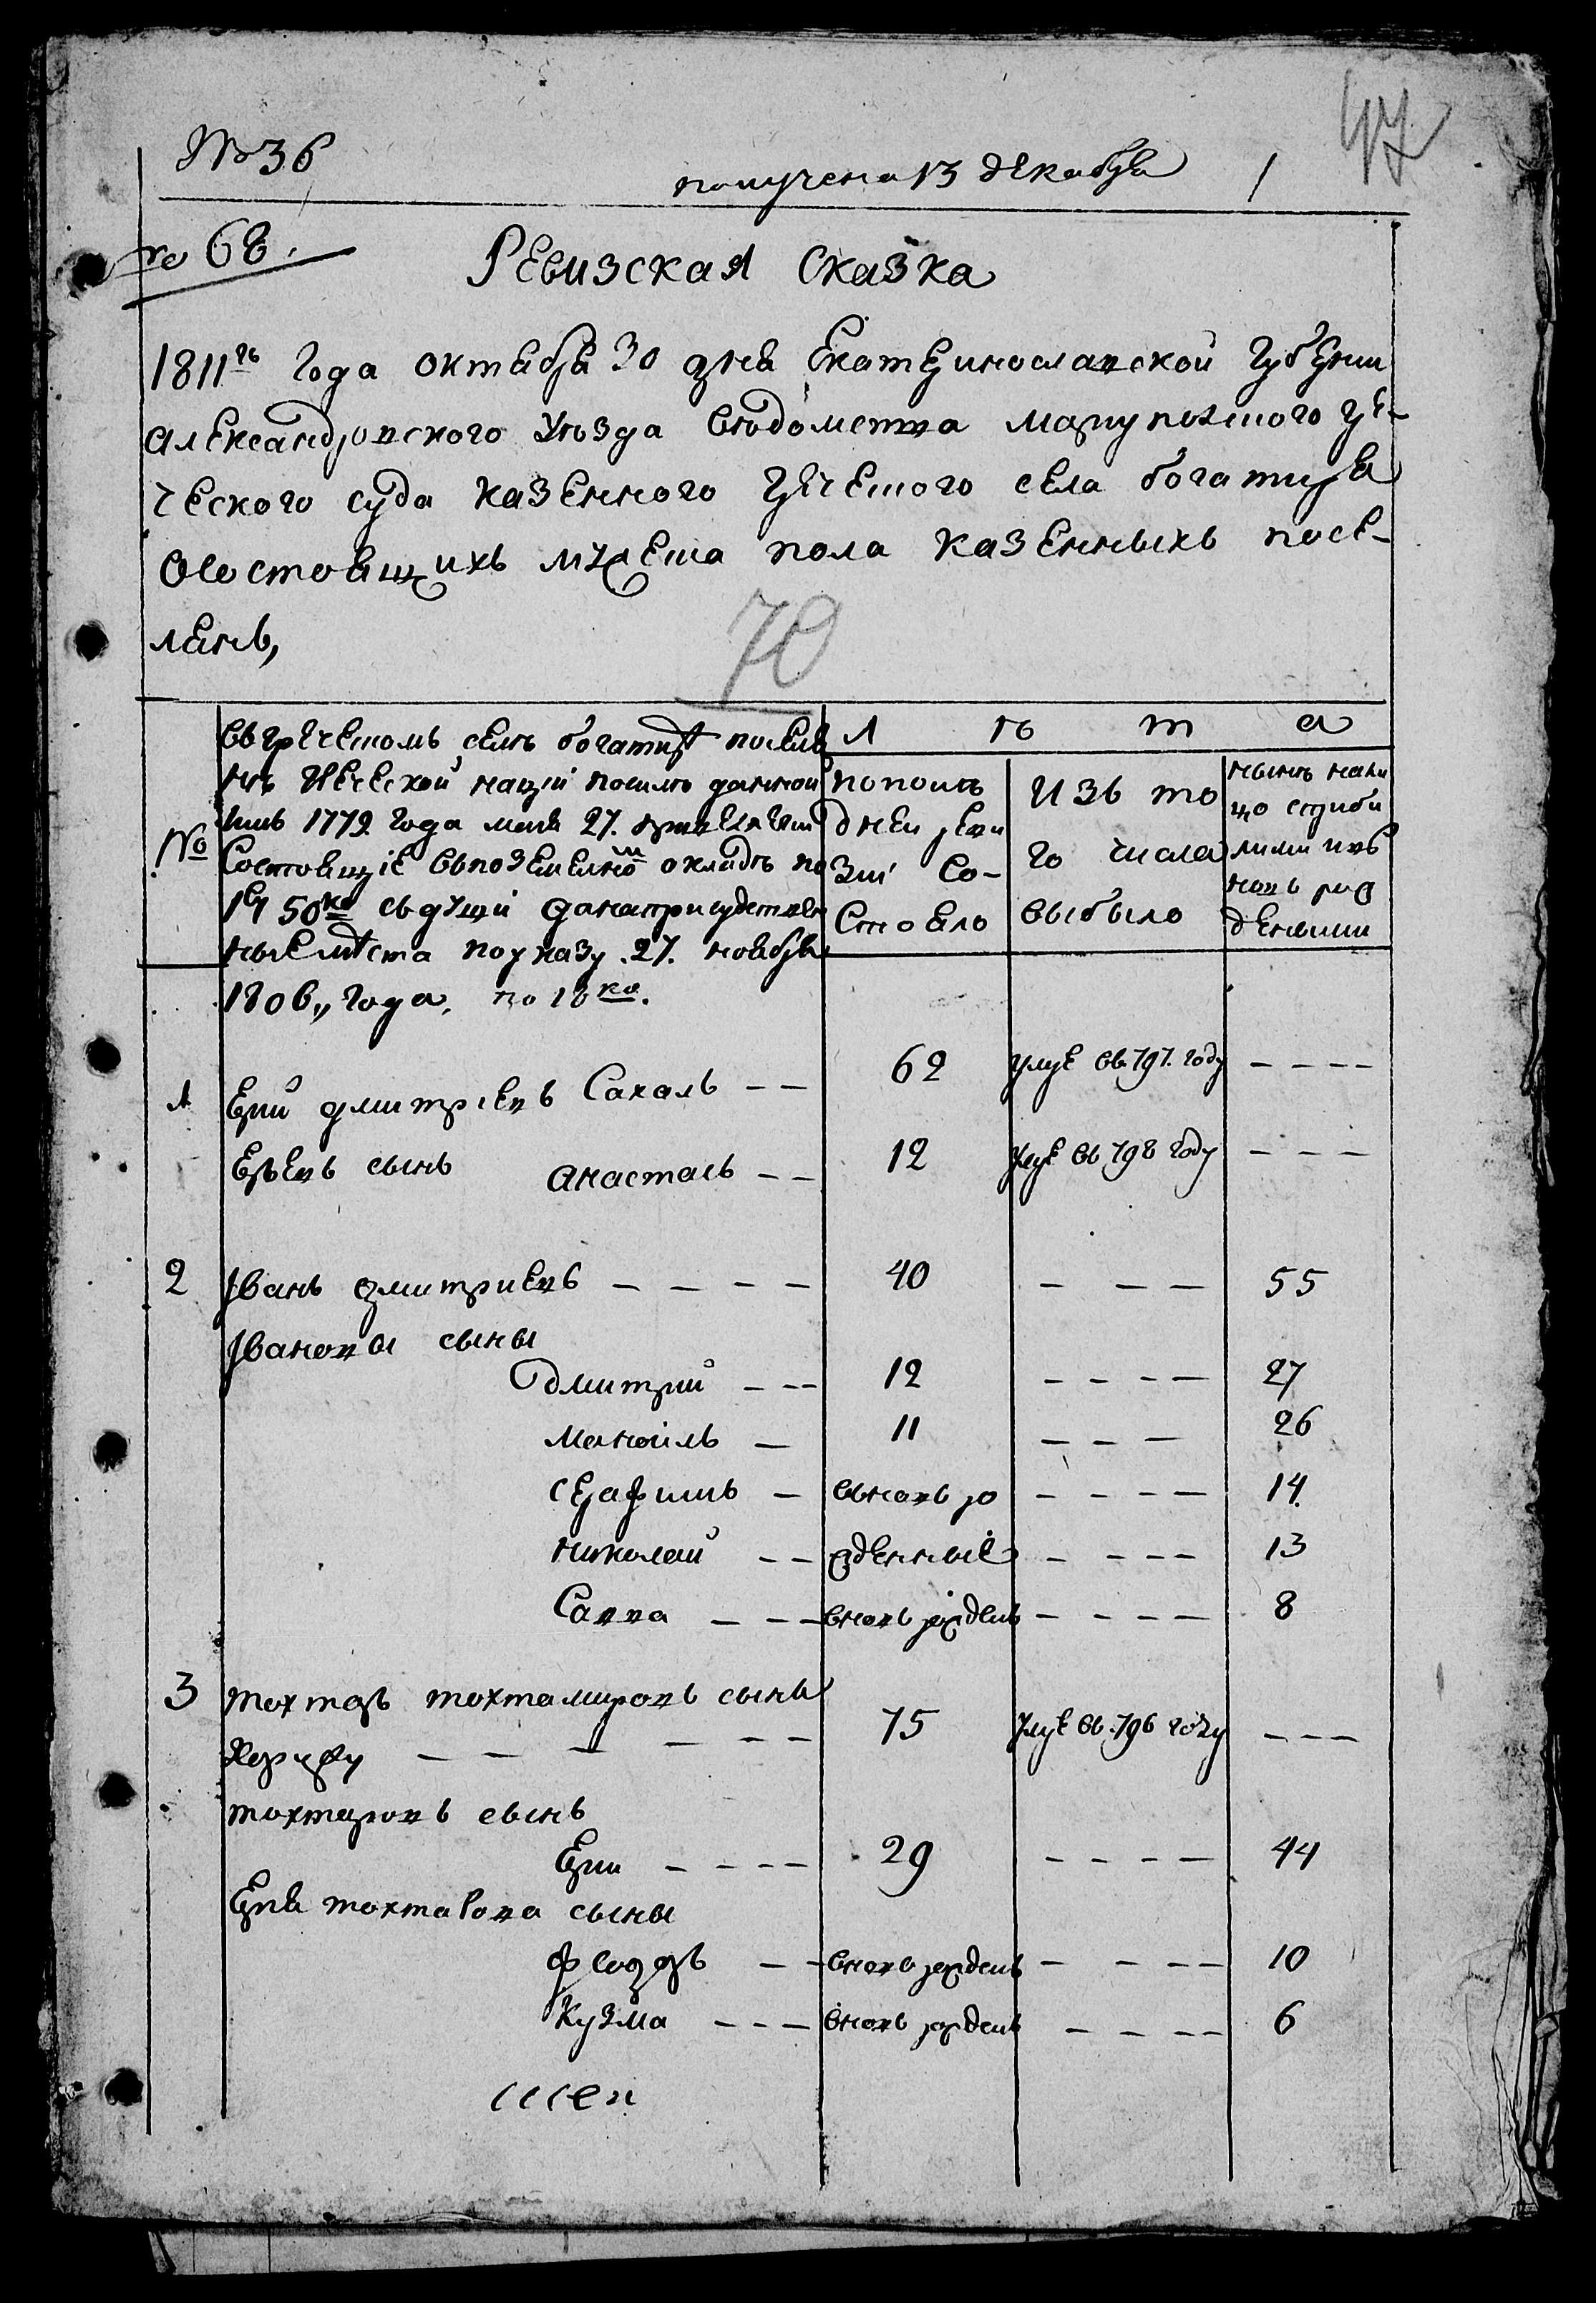 № 36
47
получена 13 декабря 1
№ 68.
Ревизская Сказка
1811го Года октября 30 дня Екатеринославской Губернии
Александровского Уезда Ведомства Мариупольского гре-
ческого суда казенного греческого села Богатиря
О состоящихъ мужеска пола казенныхъ посе-
лянъ,
70
№
въ греческомъ селе богатире
нъ Греческой нацiи по силе данной
имъ 1779 Года мая 21.
Состоящiе въ окладъ по
1 р 50 ко съ души
места по указу 21. ноября
1806,, Года, по 18 ко.
Л ѣ т а
по после
дней реви
зiи Со-
Стояло
Изъ то
го числа
выбыло
ныне нали
цо съ приби
лими и въ
новь рож
денными
1 Ерий дмитриевъ Сахалъ — — 62 умре въ 797. году — — — —
Ериевъ сынъ Анастасъ — — 12 умре въ 798 году — — —
2 Иванъ дмитриевъ — — — — 40 — — — 55
Ивановы сыны
Дмитрий — — 12 — — — — 27
Маноилъ — 11 — — — 26
серафимъ — вновь ро — — — — 14.
Николай — — жденные — — — — 13
Савва — — — вновь рожденъ — — — — 8
3 тохтаръ тохтамировъ сынъ
75 умре въ 796 году — — —
тохтаровъ сынъ
Ерии — — — — 29 — — — — 44
Ерия тохтарова сыны
феодоръ — — вновь рожденъ — — — — 10
Кузма — — — вновь рожденъ — — — — 6